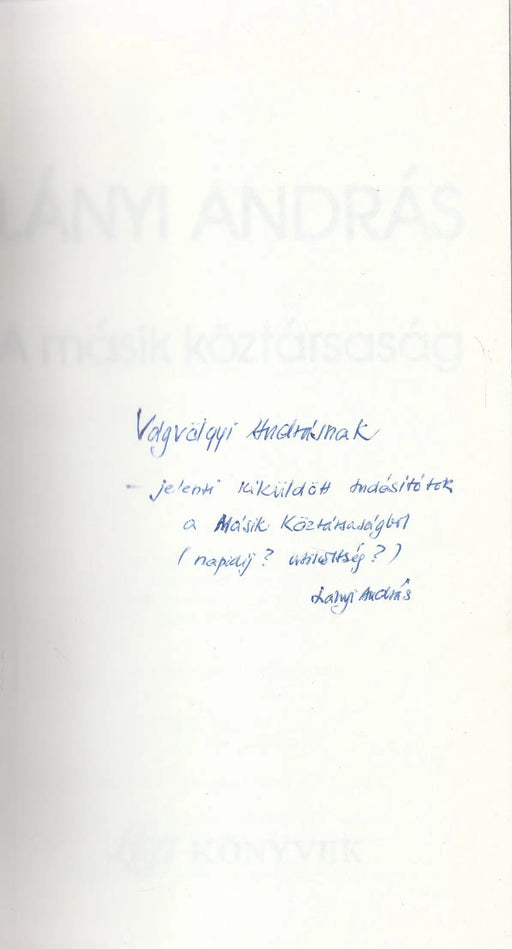 LÁNYI ANDRÁS
A másik köztársaság
Vágvölgyi Andrásnak
– jelenti kiküldött tudósítótok
a Másik Köztársaságból
(napidíj? útiköltség?)
Lányi András
KÖNYVEK